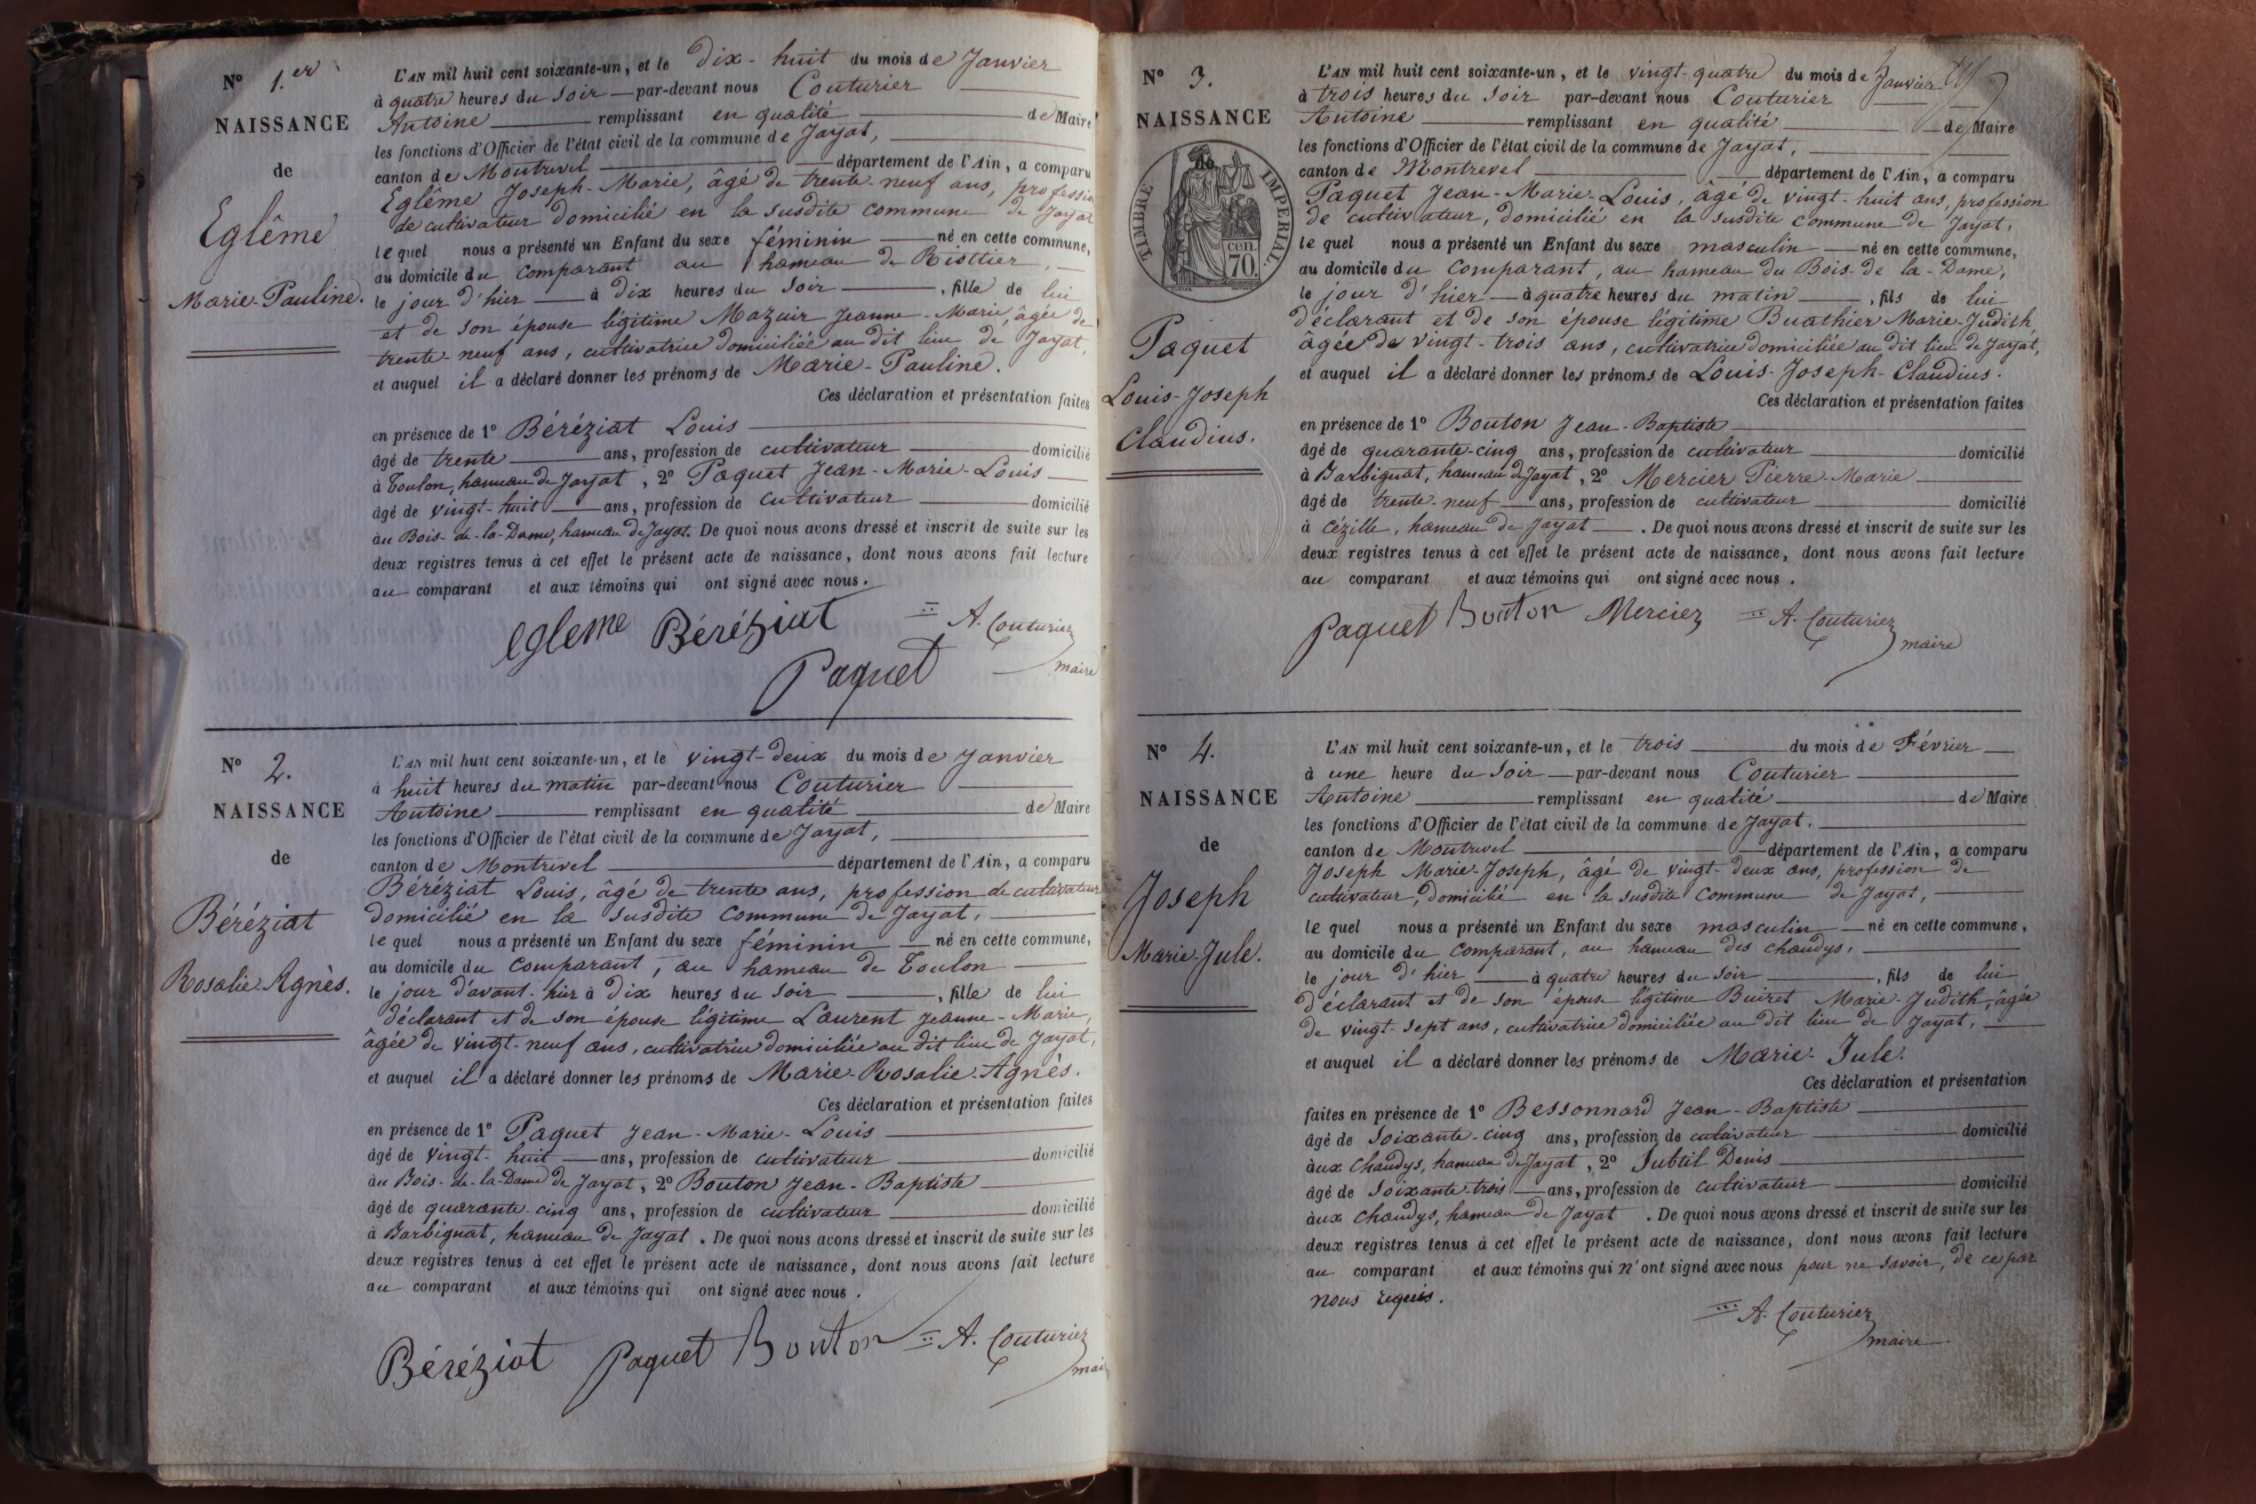 N° 1.er
NAISSANCE
de
Eglême
Marie-Pauline.
L'AN mil huit cent soixante-un, et le dix-huit du mois de Janvier
à quatre heures du Soir par-devant nous Couturier
Antoine remplissant en qualité de Maire
les fonctions d'Officier de l'état civil de la commune de Jayat,
canton de Montrevel département de l'Ain, a comparu
Eglême Joseph-Marie, âgé de trente-neuf ans, profession
de cultivateur domicilié en la susdite commune de Jayat
lequel nous a présenté un Enfant du sexe féminin né en cette commune,
au domicile du comparant au hameau de Riottier,
le jour d'hier à dix heures du Soir, fille de lui
et de son épouse légitime Mazuir Jeanne-Marie, âgée de
trente-neuf ans, cultivatrice domiciliée au dit lieu de Jayat,
et auquel il a déclaré donner les prénoms de Marie-Pauline.
Ces déclaration et présentation faites
en présence de 1° Béréziat Louis
âgé de trente ans, profession de cultivateur domicilié
à Toulon, hameau de Jayat, 2° Paquet Jean-Marie-Louis
âgé de vingt-huit ans, profession de cultivateur domicilié
au Bois-de-la-Dame, hameau de Jayat. De quoi nous avons dressé et inscrit de suite sur les
deux registres tenus à cet effet le présent acte de naissance, dont nous avons fait lecture
au comparant et aux témoins qui ont signé avec nous.
egleme Béréziat A. Couturier
Paquet maire
N° 2.
NAISSANCE
de
Béréziat
Rosalie-Agnès.
L'AN mil huit cent soixante-un, et le vingt-deux du mois de Janvier
à huit heures du matin par-devant nous Couturier
Antoine remplissant en qualité de Maire
les fonctions d'Officier de l'état civil de la commune de Jayat,
canton de Montrevel département de l'Ain, a comparu
Béréziat Louis, âgé de trente ans, profession de cultivateur
domicilié en la susdite commune de Jayat,
lequel nous a présenté un Enfant du sexe féminin né en cette commune,
au domicile du comparant, au hameau de Toulon
le jour d'avant-hier à dix heures du Soir, fille de lui
déclarant et de son épouse légitime Laurent Jeanne-Marie,
âgée de vingt-neuf ans, cultivatrice domiciliée au dit lieu de Jayat,
et auquel il a déclaré donner les prénoms de Marie-Rosalie-Agnès.
Ces déclaration et présentation faites
en présence de 1° Paquet Jean-Marie-Louis
âgé de vingt-huit ans, profession de cultivateur domicilié
au Bois-de-la-Dame de Jayat, 2° Bouton Jean-Baptiste
âgé de quarante-cinq ans, profession de cultivateur domicilié
à Barbignat, hameau de Jayat. De quoi nous avons dressé et inscrit de suite sur les
deux registres tenus à cet effet le présent acte de naissance, dont nous avons fait lecture
au comparant et aux témoins qui ont signé avec nous.
Béréziat Paquet Bouton A. Couturier
mai
N° 3.
NAISSANCE
de
TIMBRE IMPERIAL
70 cen.
Paquet
Louis-Joseph
Claudius.
L'AN mil huit cent soixante-un, et le vingt-quatre du mois de Janvier
à trois heures du Soir par-devant nous Couturier
Antoine remplissant en qualité de Maire
les fonctions d'Officier de l'état civil de la commune de Jayat,
canton de Montrevel département de l'Ain, a comparu
Paquet Jean-Marie-Louis, âgé de vingt-huit ans, profession
de cultivateur, domicilié en la susdite commune de Jayat,
lequel nous a présenté un Enfant du sexe masculin né en cette commune,
au domicile du comparant, au hameau du Bois-de-la-Dame,
le jour d'hier à quatre heures du matin, fils de lui
déclarant et de son épouse légitime Buathier Marie-Judith
âgée de vingt-trois ans, cultivatrice domiciliée au dit lieu de Jayat,
et auquel il a déclaré donner les prénoms de Louis-Joseph-Claudius.
Ces déclaration et présentation faites
en présence de 1° Bouton Jean-Baptiste
âgé de quarante-cinq ans, profession de cultivateur domicilié
à Barbignat, hameau de Jayat, 2° Mercier Pierre-Marie
âgé de trente-neuf ans, profession de cultivateur domicilié
à Cézille, hameau de Jayat. De quoi nous avons dressé et inscrit de suite sur les
deux registres tenus à cet effet le présent acte de naissance, dont nous avons fait lecture
au comparant et aux témoins qui ont signé avec nous.
Paquet Bouton Mercier A. Couturier
maire
N° 4.
NAISSANCE
de
Joseph
Marie-Jule.
L'AN mil huit cent soixante-un, et le trois du mois de Février
à une heure du Soir par-devant nous Couturier
Antoine remplissant en qualité de Maire
les fonctions d'Officier de l'état civil de la commune de Jayat.
canton de Montrevel département de l'Ain, a comparu
Joseph Marie-Joseph, âgé de vingt-deux ans, profession de
cultivateur, domicilié en la susdite commune de Jayat,
lequel nous a présenté un Enfant du sexe masculin né en cette commune,
au domicile du comparant, au hameau des chaudys,
le jour d'hier à quatre heures du Soir, fils de lui
déclarant et de son épouse légitime Buiret Marie-Judith, âgée
de vingt-sept ans, cultivatrice domiciliée au dit lieu de Jayat,
et auquel il a déclaré donner les prénoms de Marie-Jule.
Ces déclaration et présentation
faites en présence de 1° Bessonnard Jean-Baptiste
âgé de soixante-cinq ans, profession de cultivateur domicilié
aux chaudys, hameau de Jayat, 2° Subtil Denis
âgé de soixante-trois ans, profession de cultivateur domicilié
aux chaudys, hameau de Jayat. De quoi nous avons dressé et inscrit de suite sur les
deux registres tenus à cet effet le présent acte de naissance, dont nous avons fait lecture
au comparant et aux témoins qui n'ont signé avec nous pour ne savoir, de ce par
nous requis.
A. Couturier
maire